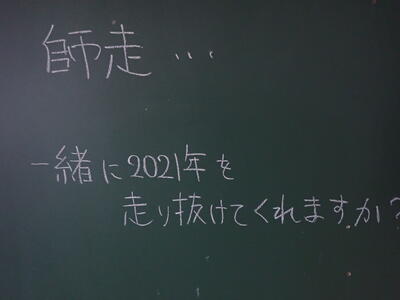 師走…
一緒に2021年を
走り抜けてくれますか?